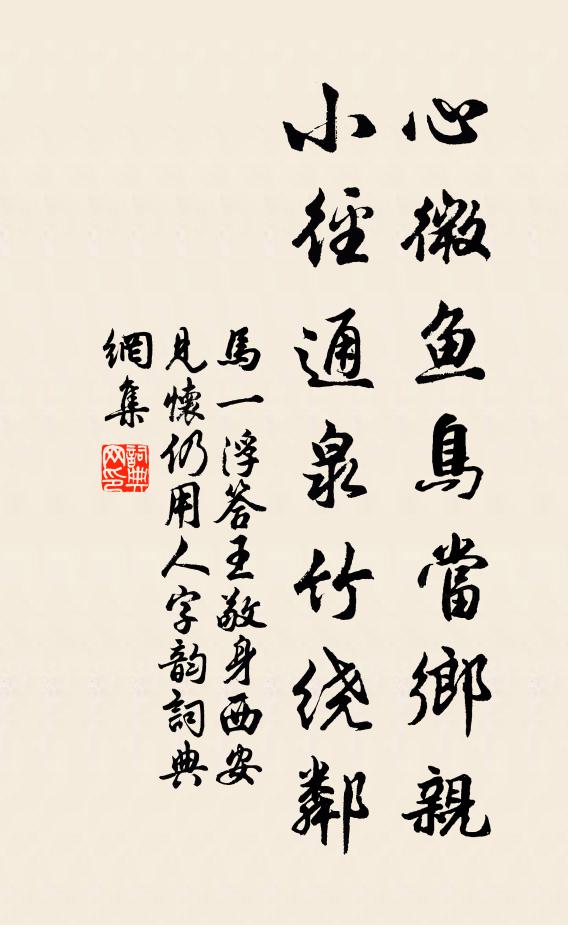 心微鱼鳥當鄉親
小徑通泉竹绕鄰
馬一浮答王敬身西安
見懷仍用人字韵詞典
網集
詞典
网印